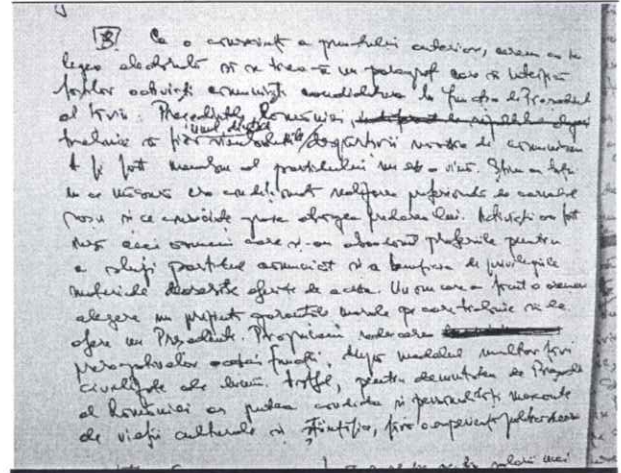 8 Ca o consecință a punctului anterior, cerem ca în
legea electorală să se treacă un paragraf care să interzică
foștilor activiști comuniști candidatura la funcția de Președinte
al țării. Președintele României,
unul dintre
trebuie să fie simbolurile despărțirii noastre de comunism
A fi fost membru al partidului nu este o vină. Știm cu toții
în ce măsură era condiționată realizarea profesională de carnetul
roșu și ce consecințe grave atrăgea predarea lui. Activiștii au fost
însă acei oameni care și-au abandonat profesiile pentru
a sluji partidul comunist și a beneficia de privilegiile
materiale deosebite oferite de acesta. Un om care a făcut o asemenea
alegere nu prezintă garanțiile morale pe care trebuie să le
ofere un Președinte. Propunem reducerea
prerogativelor acestei funcții, după modelul multor țări
civilizate ale lumii. Astfel, pentru demnitatea de Președinte
al României ar putea candida și personalități marcante
ale vieții culturale și științifice, fără o experiență politică